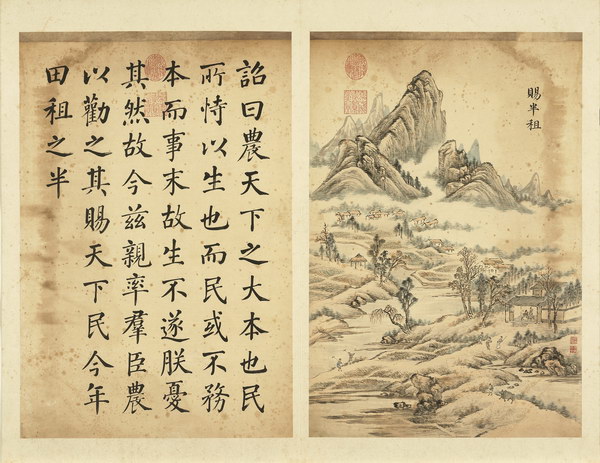 賜半租
詔曰農天下之大本也民
所恃以生也而民或不務
本而事末故生不遂朕憂
其然故今茲親率羣臣農
以勸之其賜天下民今年
田租之半